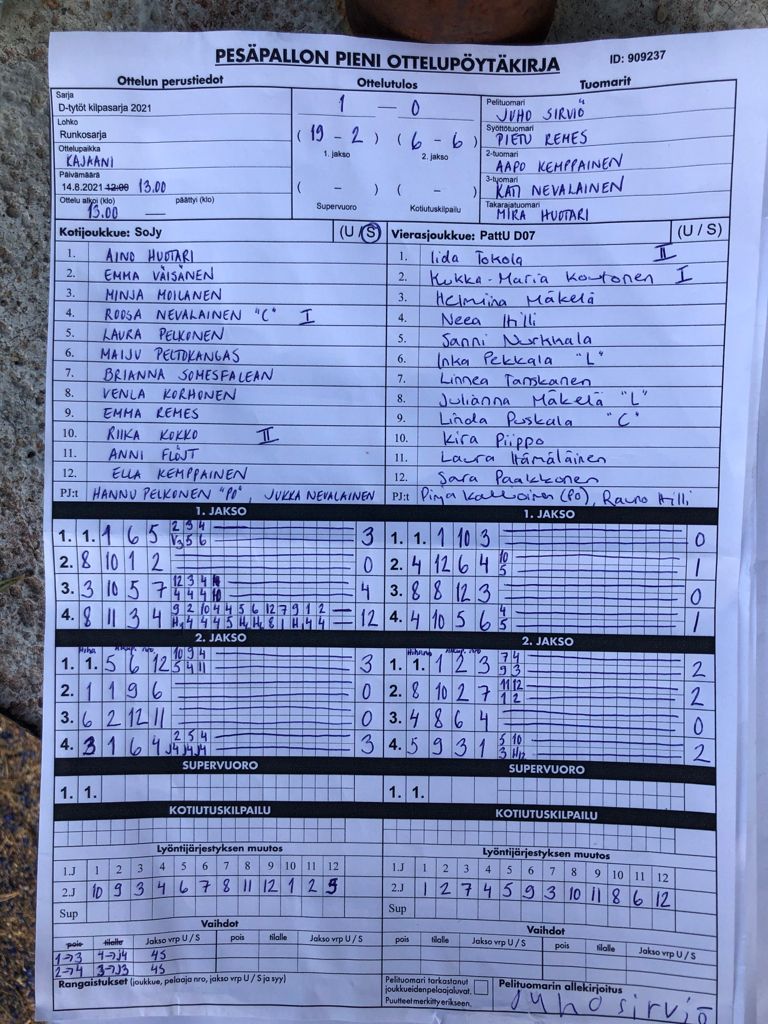 PESÄPALLON PIENI OTTELUPÖYTÄKIRJA ID: 909237
Ottelun perustiedot Ottelutulos Tuomarit
Sarja
D-tytöt kilpasarja 2021
Lohko
Runkosarja
Ottelupaikka
KAJAANI
Päivämäärä
14.8.2021 12:00 13.00
Ottelu alkoi (klo) päättyi (klo)
13.00 —
1 — 0
( 19 - 2 ) ( 6 - 6 )
1. jakso 2. jakso
( - ) ( - )
Supervuoro Kotiutuskilpailu
Pelituomari
JUHO SIRVIÖ
Syöttötuomari
PIETU REMES
2-tuomari
AAPO KEMPPAINEN
3-tuomari
KATI NEVALAINEN
Takarajatuomari
MIRA HUOTARI
Kotijoukkue: SoJy (U / S)
1. AINO HUOTARI
2. EMMA VÄISÄNEN
3. MINJA MOILANEN
4. ROOSA NEVALAINEN "C" I
5. LAURA PELKONEN
6. MAIJU PELTOKANGAS
7. BRIANNA SOMESFALEAN
8. VENLA KORHONEN
9. EMMA REMES
10. RIIKA KOKKO II
11. ANNI FLÖJT
12. ELLA KEMPPAINEN
PJ:t HANNU PELKONEN "PO", JUKKA NEVALAINEN
Vierasjoukkue: PattU D07 (U / S)
1. Iida Tokola II
2. Kukka-Maria Koutonen I
3. Helmiina Mäkelä
4. Neea Hilli
5. Sanni Nurkkala
6. Inka Pekkala "L"
7. Linnea Tanskanen
8. Julianna Mäkelä "L"
9. Linda Puskala "C"
10. Kira Piippo
11. Laura Hämäläinen
12. Sara Paakkonen
PJ:t (PO), Rauno Hilli
1. JAKSO
1. 1. 1 6 5 2 3 4 3
V3 5 6
2. 8 10 1 2 0
3. 3 10 5 7 12 3 4 4
4 4 4 10
4. 8 11 3 4 9 2 10 4 4 5 6 12 7 9 1 2 12
1. JAKSO
1. 1. 1 10 3 0
2. 4 12 6 4 10 1
5
3. 8 8 12 3 0
4. 4 10 5 6 4 1
5
2. JAKSO
1. 1. 5 6 12 10 9 4 3
5 4 11
2. 1 1 9 6 0
3. 6 2 12 11 0
4. 3 1 6 4 2 5 4 3
J4 J4 J4
2. JAKSO
1. 1. 1 2 3 7 4 2
9 3
2. 8 10 2 7 11 12 2
1 2
3. 4 8 6 4 0
4. 5 9 3 1 5 10 2
3 H12
SUPERVUORO
1. 1.
SUPERVUORO
1. 1.
KOTIUTUSKILPAILU
KOTIUTUSKILPAILU
Lyöntijärjestyksen muutos
1.J 1 2 3 4 5 6 7 8 9 10 11 12
2.J 10 9 3 4 6 7 8 11 12 1 2 5
Sup
Lyöntijärjestyksen muutos
1.J 1 2 3 4 5 6 7 8 9 10 11 12
2.J 1 2 7 4 5 9 3 10 11 8 6 12
Sup
Vaihdot
pois tilalle Jakso vrp U / S pois tilalle Jakso vrp U / S
1→3 4→J4 4S
2→4 3→J3 4S
Vaihdot
pois tilalle Jakso vrp U / S pois tilalle Jakso vrp U / S
Rangaistukset (joukkue, pelaaja nro, jakso vrp U / S ja syy)
Pelituomari tarkastanut
joukkueidenpelaajaluvat.
Puutteet merkitty erikseen.
Pelituomarin allekirjoitus
Juho sirviö